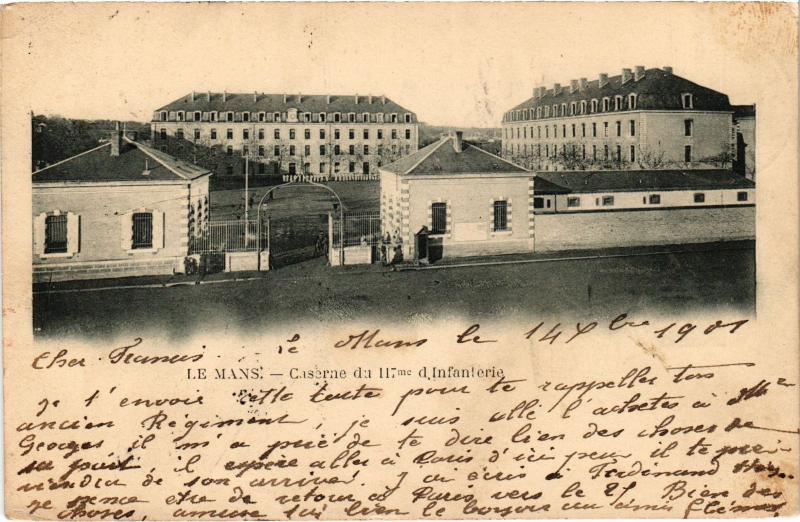 le Mans le 14 Xbre 1901
Cher Francis
LE MANS. — Caserne du 117me d'Infanterie
Je t'envoie cette carte pour te rappeller ton
ancien Régiment, je suis allé l'acheter à Mr
Georges il m'a prié de te dire bien des choses de
sa part, il espère aller à Paris d'ici peu il te prei
viendra de son arrivée. J'ai écris à Ferdinand
je pense être de retour à Paris vers le 25 Bien des
choses, amuse toi bien le bonjour au amis